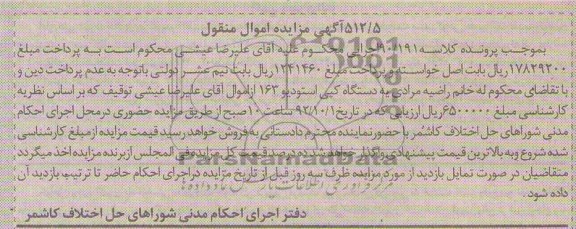 ۵۱۲/۵آگهی مزایده اموال منقول
بموجب پرونده کلاسه ۹۰۱۹۱ اجرایی محکوم علیه آقای علیرضا عیشی محکوم است به پرداخت مبلغ
۱۷۸۲۹۲۰۰ریال بابت اصل خواسته و پرداخت مبلغ ۱۲۴۱۴۶۰ریال بابت نیم عشر دولتی باتوجه به عدم پرداخت دین و
با تقاضای محکوم له خانم راضیه مرادی یک دستگاه کپی استودیو ۱۶۳ ازاموال آقای علیرضا عیشی توقیف که بر اساس نظریه
کارشناسی مبلغ ۶۵۰۰۰۰۰ریال ارزیابی که در تاریخ ۹۲/۱۰/۱ ساعت ۱۰صبح از طریق مزایده حضوری درمحل اجرای احکام
مدنی شوراهای حل اختلاف کاشمر با حضورنماینده محترم دادستانی به فروش خواهد رسید قیمت مزایده از مبلغ کارشناسی
شده شروع وبه بالاترین قیمت پیشنهادی واگذار خواهد شد ده درصد قیمت کل مزایده فی المجلس ازبرنده مزایده اخذ میگردد
متقاضیان در صورت تمایل بازدید از مورد مزایده ظرف سه روز قبل از تاریخ مزایده دراجرای احکام حاضر تا ترتیب بازدید آن
داده شود.
دفتر اجرای احکام مدنی شوراهای حل اختلاف کاشمر
ParsNamadData